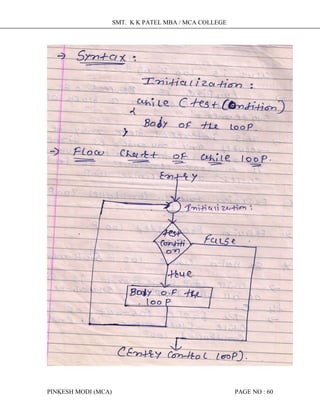 SMT. K K PATEL MBA / MCA COLLEGE
→ Syntax :
Initialization :
while (test Condition)
{
Body of the loop.
}
→ Flow Chart of while loop.
Entry
Initialization :
test
Conditi
on
False
true
Body of the
loop
(Entry Control loop).
PINKESH MODI (MCA)
PAGE NO : 60